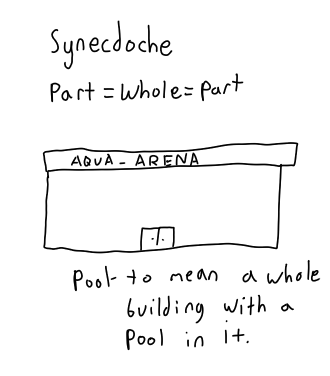 Synecdoche
Part = Whole = Part
AQUA - ARENA
Pool - to mean a whole
building with a
Pool in it.